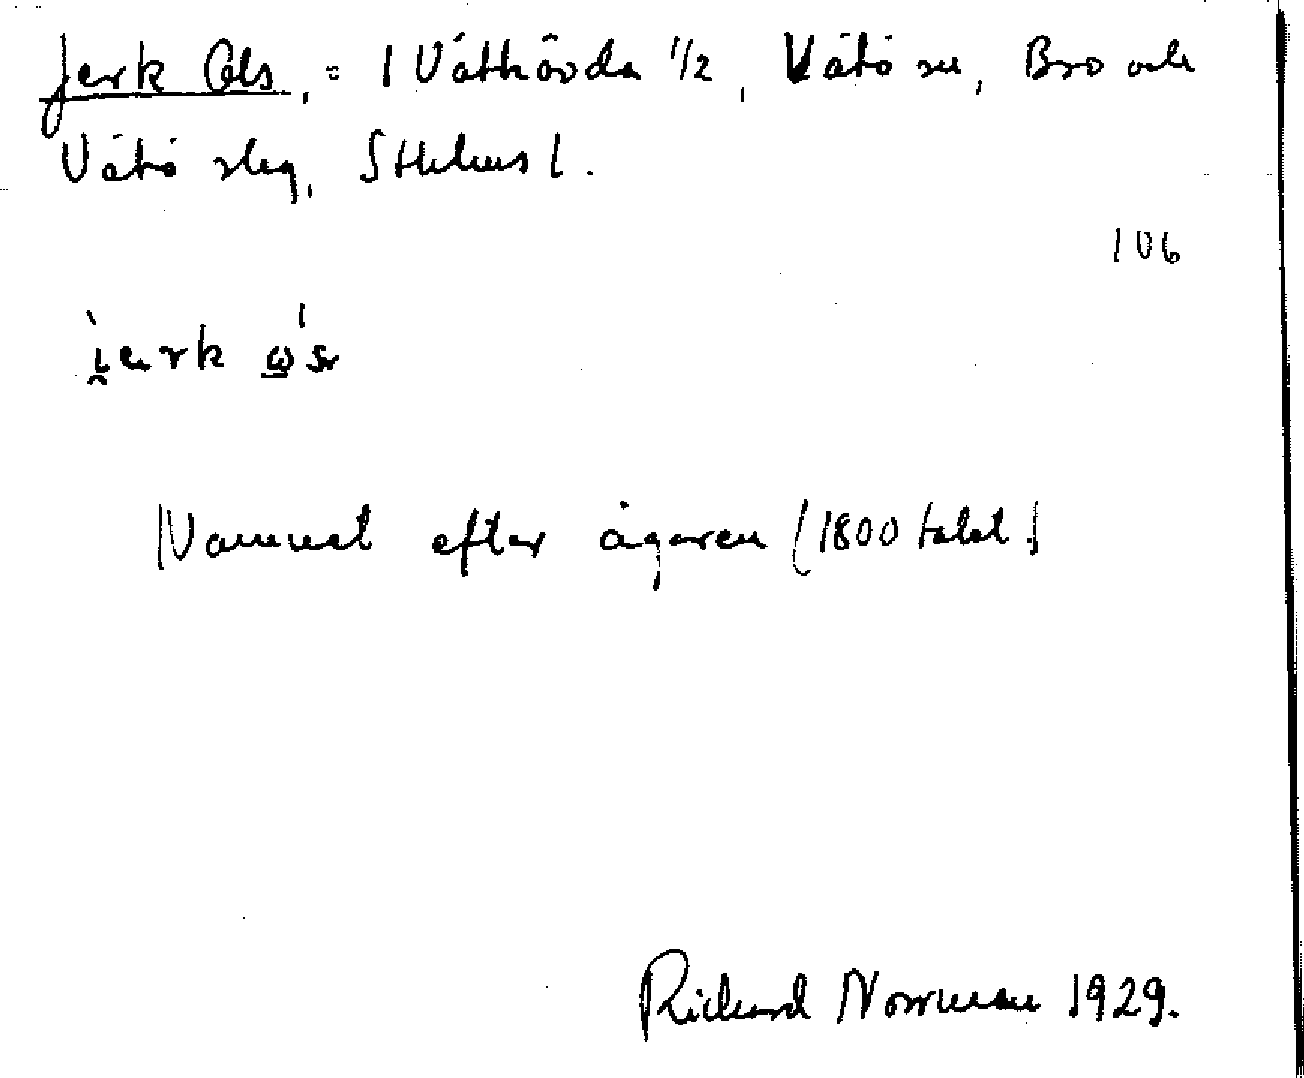 Jerk Ols, = 1 Väthövda 1/2, Vätö sn, Bro och
Vätö slg, Sthlms l.
106
Namnet efter ägaren (1800 talet.)
Richard Norrman 1929.